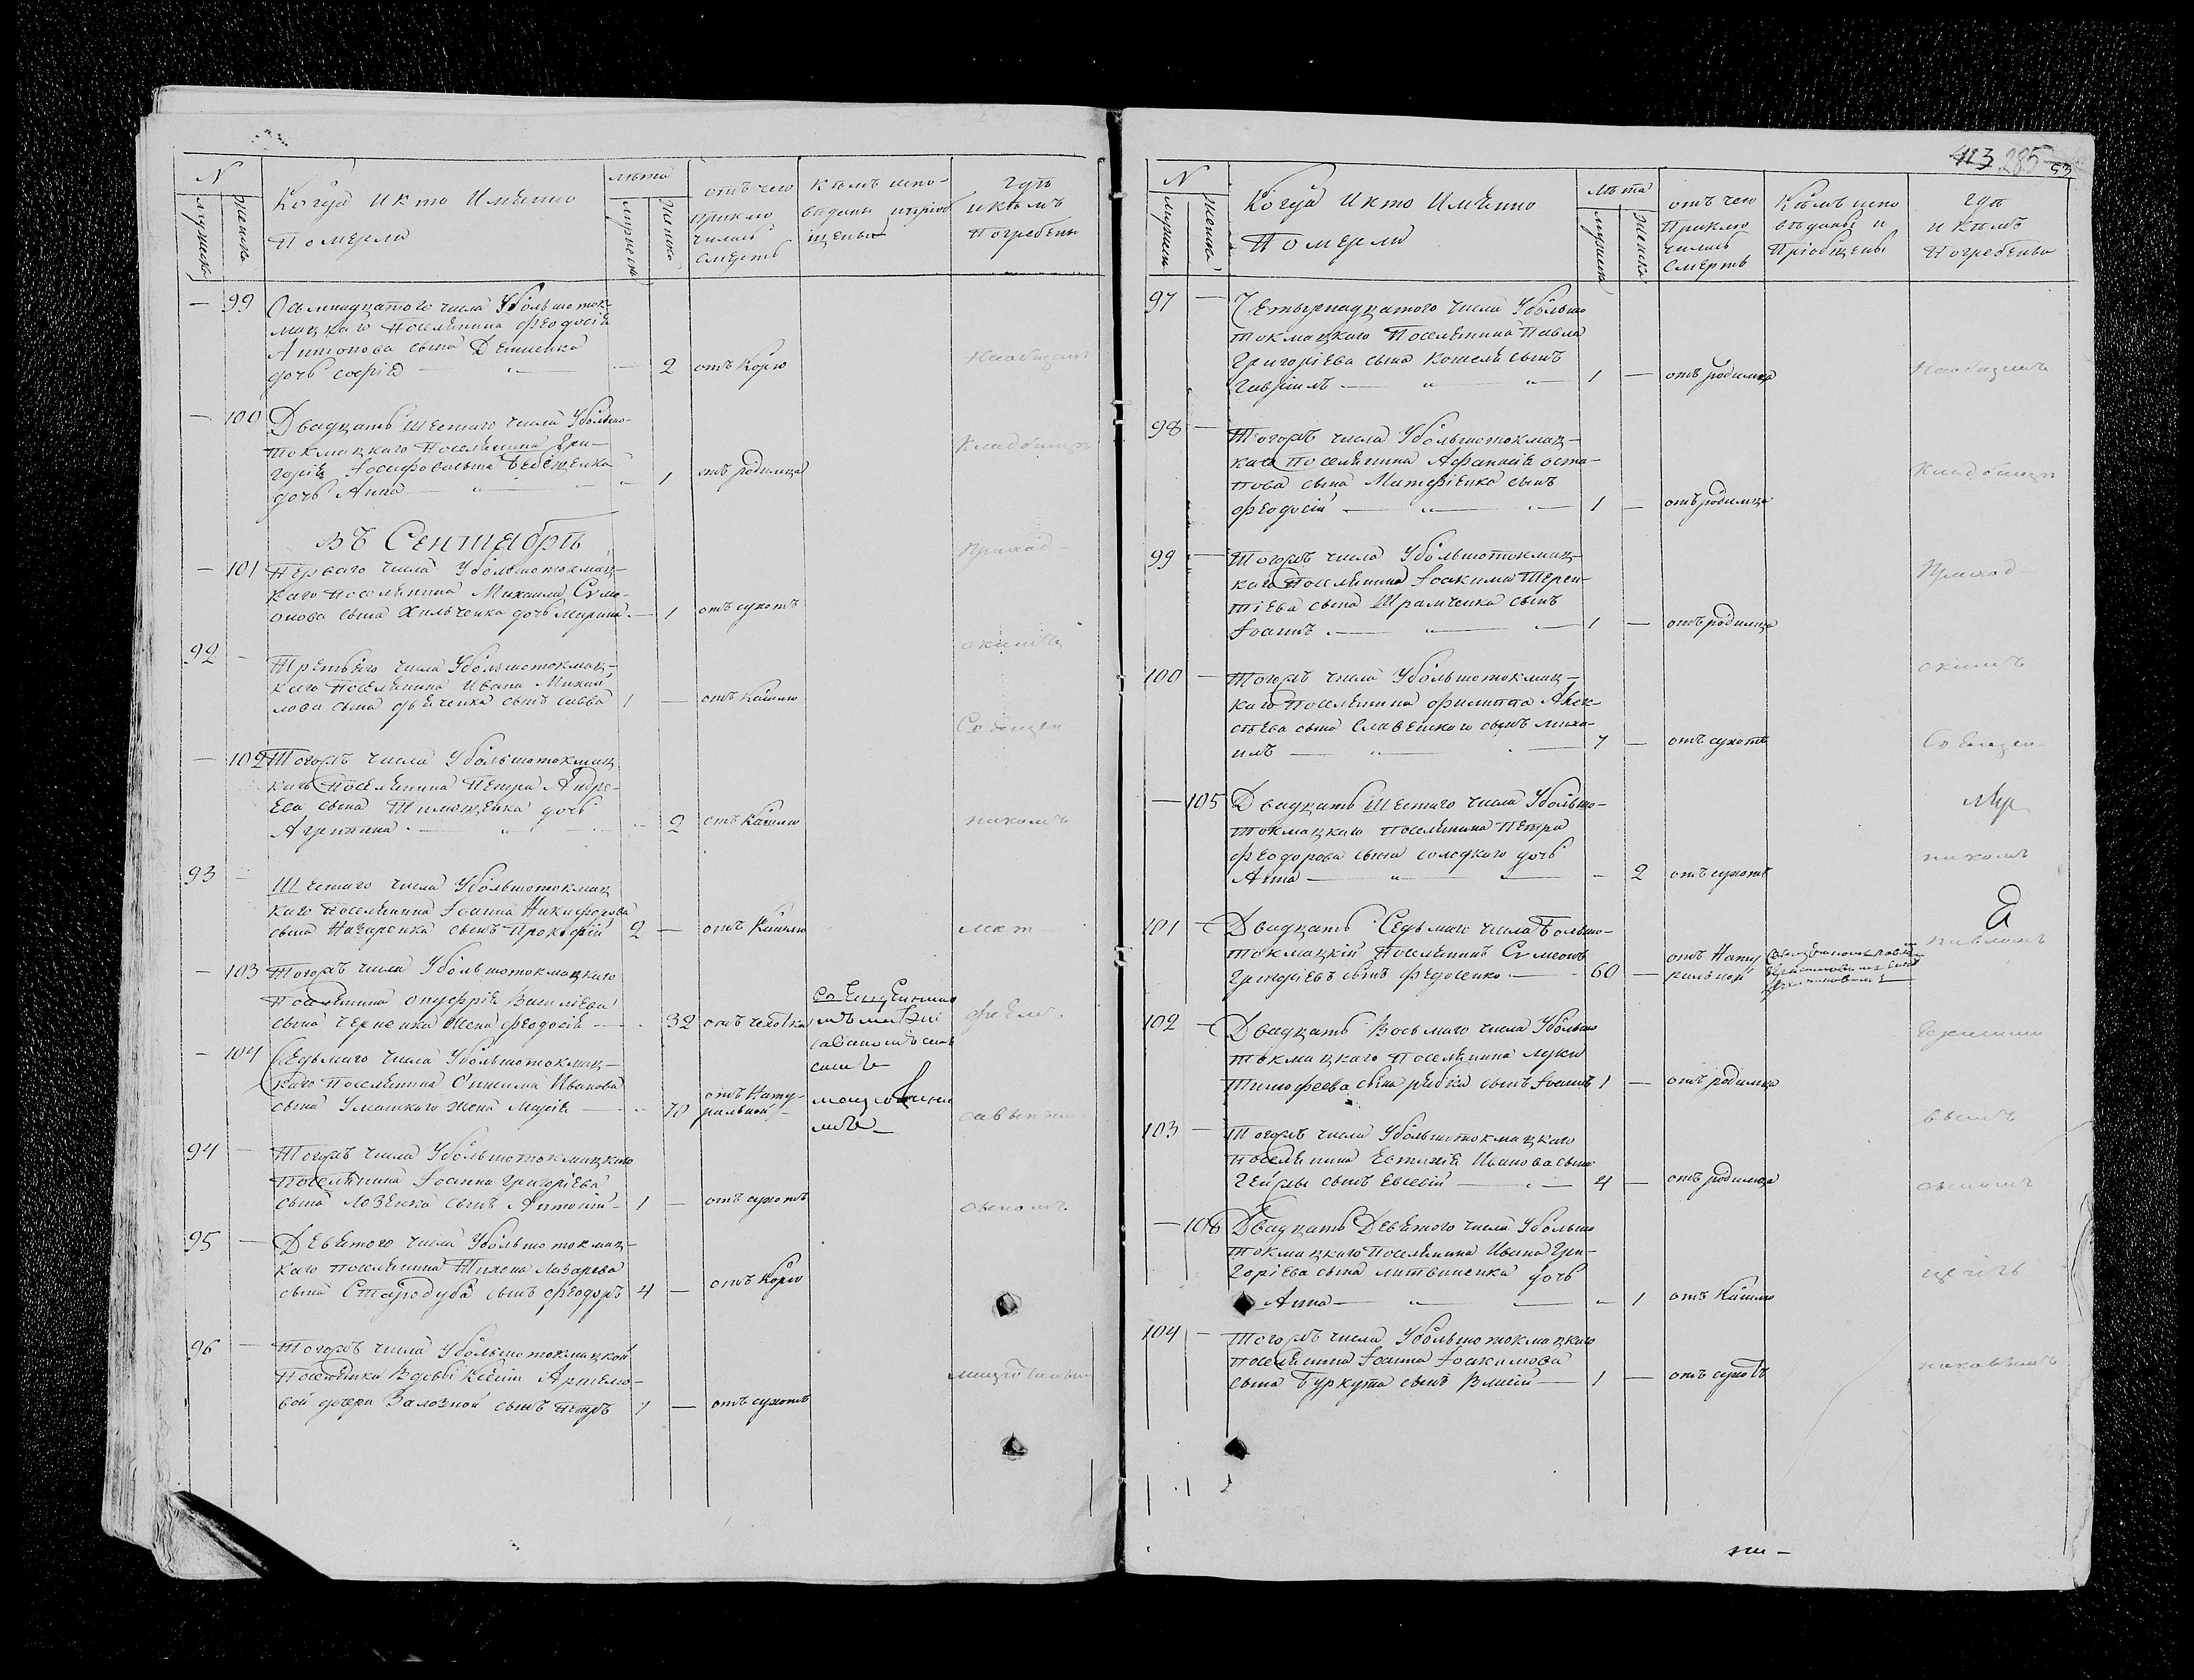 N
Когда и кто Имянно
Померли
мужеска
женска
лѣта
мужеска
женска
отъ чего
приклю
чилась
смерть
Кѣмъ испо-
ведоны и пріоб
щены
гдѣ
и кѣмъ
Погребены
— 99 Осьмнадцатого числа Убольшоток-
мацкаго Поселянина Феодосія
Антонова сына Деинека
дочь софія — 2 отъ Корю
Наобщемъ
— 100 Двадцать Шестаго числа Убольшо-
токмацкаго Поселянина Гри-
горія Іосифова сына
дочь Анна — 1 отъ родимца
Кладбищѣ
въ Сентябрѣ
Приход-
— 101 Перваго числа Убольшотокмац-
каго Поселянина Михаила Симе-
онова сына Хильченка дочь Марина — 1 отъ сухотъ
92 — Третьяго числа Убольшотокмац-
каго Поселянина Ивана Михай
лова сына сынъ савва 1 — отъ Кашлю
Священ
— 102 Тогожъ числа Убольшотокмац
каго Поселянина Петра Андре-
ева сына Тимощенка дочь
Агрипина — 2 отъ Кашлю
никомъ
93 — Шестаго числа Убольшотокмац
каго Поселянина Іоанна Никифорова
сына Назаренка сынъ Прокофій 2 — отъ Кашлю
мат
— 103 Тогожъ числа Убольшотокмацкаго
Поселянина Онуфрія Василіева
сына Черненка жена Феодосія — 32 отъ чехотки
Священнико
мъ матвѣи
савиномъ
фѣемъ
— 104 Седьмаго числа Убольшотокмац-
каго Поселянина Онисима Иванова
сына Уманского жена Марія — 70 отъ Нату-
ральной
94 — Тогожъ числа Убольшотокмацкаго
Поселянина Іоанна Григоріева
сына Лозенка сынъ Антоній 1 — отъ сухотъ
95 — Девятого числа Убольшотокмац-
каго Поселянина Тихона Лазарева
сына Стародуба сынъ Феодоръ 4 — отъ Корю
96 — Тогожъ числа Убольшотокмацкой
Поселянки Вдовы Ксеніи Артемо-
вой дочери Залозной сынъ Петръ 1 — отъ сухотъ
413 285 53
N
Когда и кто Имянно
Померли
мужеска
женска
лѣта
мужеска
женска
отъ чего
Приклю
чилась
Смерть
Кѣмъ испо
вѣданы и
Пріобщены
гдѣ
и кѣмъ
Погребены
97 — Четырнадцатого числа Убольшо
токмацкаго Поселянина Павла
Григоріева сына Кошеля сынъ
Гавріилъ — 1 — отъ родимца
Наобщемъ
98 — Тогожъ числа Убольшотокмац-
каго Поселянина Афанасія оста-
пова сына Матфіенка сынъ
Феодосій — 1 — отъ родимца
Кладбищѣ
99 — Тогожъ числа Убольшотокмац-
каго Поселянина Іоакима Терен-
тіева сына Шрамченка сынъ
Іоаннъ — 1 — отъ родимца
Приход
100 — Тогожъ числа Убольшотокмац-
каго Поселянина Филиппа Алек-
сѣева сына Славенского сынъ миха-
илъ — 7 — отъ сухотъ
Священ-
— 105 Двадцать Шестаго числа Убольшо-
токмацкаго Поселянина Петра
Феодорова сына солодкого дочь
Анна — 2 отъ сухотъ
никомъ
101 — Двадцать Седьмаго числа Большо-
токмацкій Поселянинъ Симеонъ
Григоріевъ сынъ Федосенко — 60 — отъ Нату
ральной
павломъ
102 — Двадцать Восьмаго числа Убольшо
токмацкаго Поселянина Луки
Тимофеева сына рябка сынъ Іоаннъ 1 — отъ родимца
103 — Тогожъ числа Убольшотокмацкаго
Поселянина Евтихія Иванова сына
сынъ Евсевій — 4 — отъ родимца
— 106 Двадцать Девятого числа Убольшо
токмацкаго Поселянина Ивана Гри-
горіева сына литвиненка дочь
Анна — 1 отъ Кашлю
104 — Тогожъ числа Убольшотокмацкаго
Поселянина Іоанна Іоакимова
сына Буркута сынъ Власій — 1 — отъ сухотъ